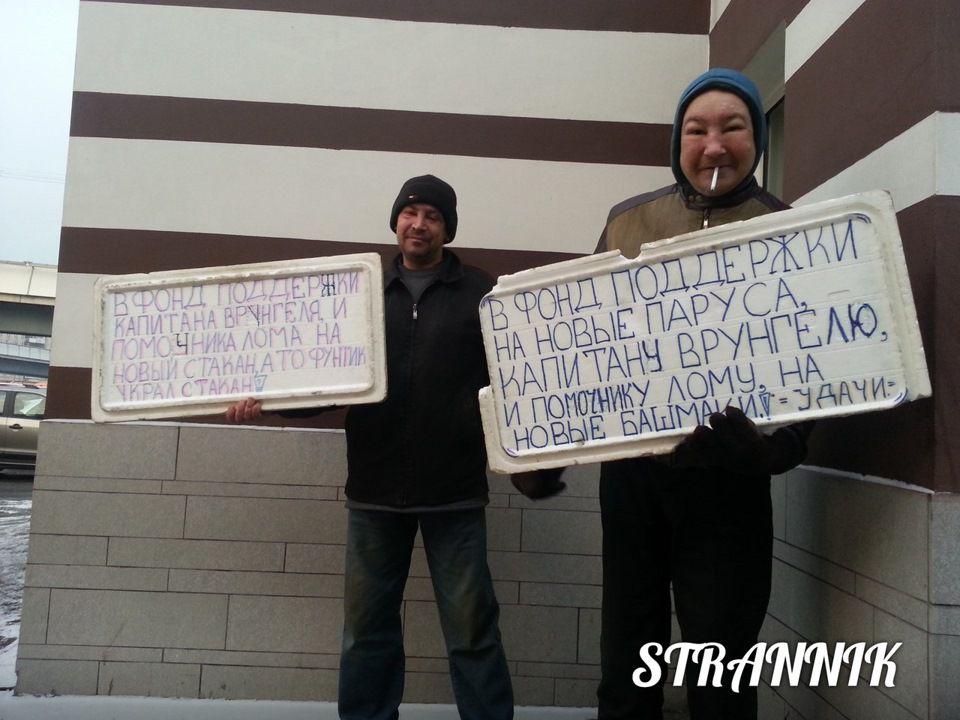 В ФОНД ПОДДЕРЖКИ
КАПИТАНА ВРУНГЕЛЯ, И
ПОМОЧНИКА ЛОМА НА
НОВЫЙ СТАКАН, А ТО ФУНТИК
УКРАЛ СТАКАН!
В ФОНД ПОДДЕРЖКИ
НА НОВЫЕ ПАРУСА,
КАПИТАНУ ВРУНГЕЛЮ,
И ПОМОЧНИКУ ЛОМУ, НА
НОВЫЕ БАШМАКИ! =УДАЧИ=
STRANNIK